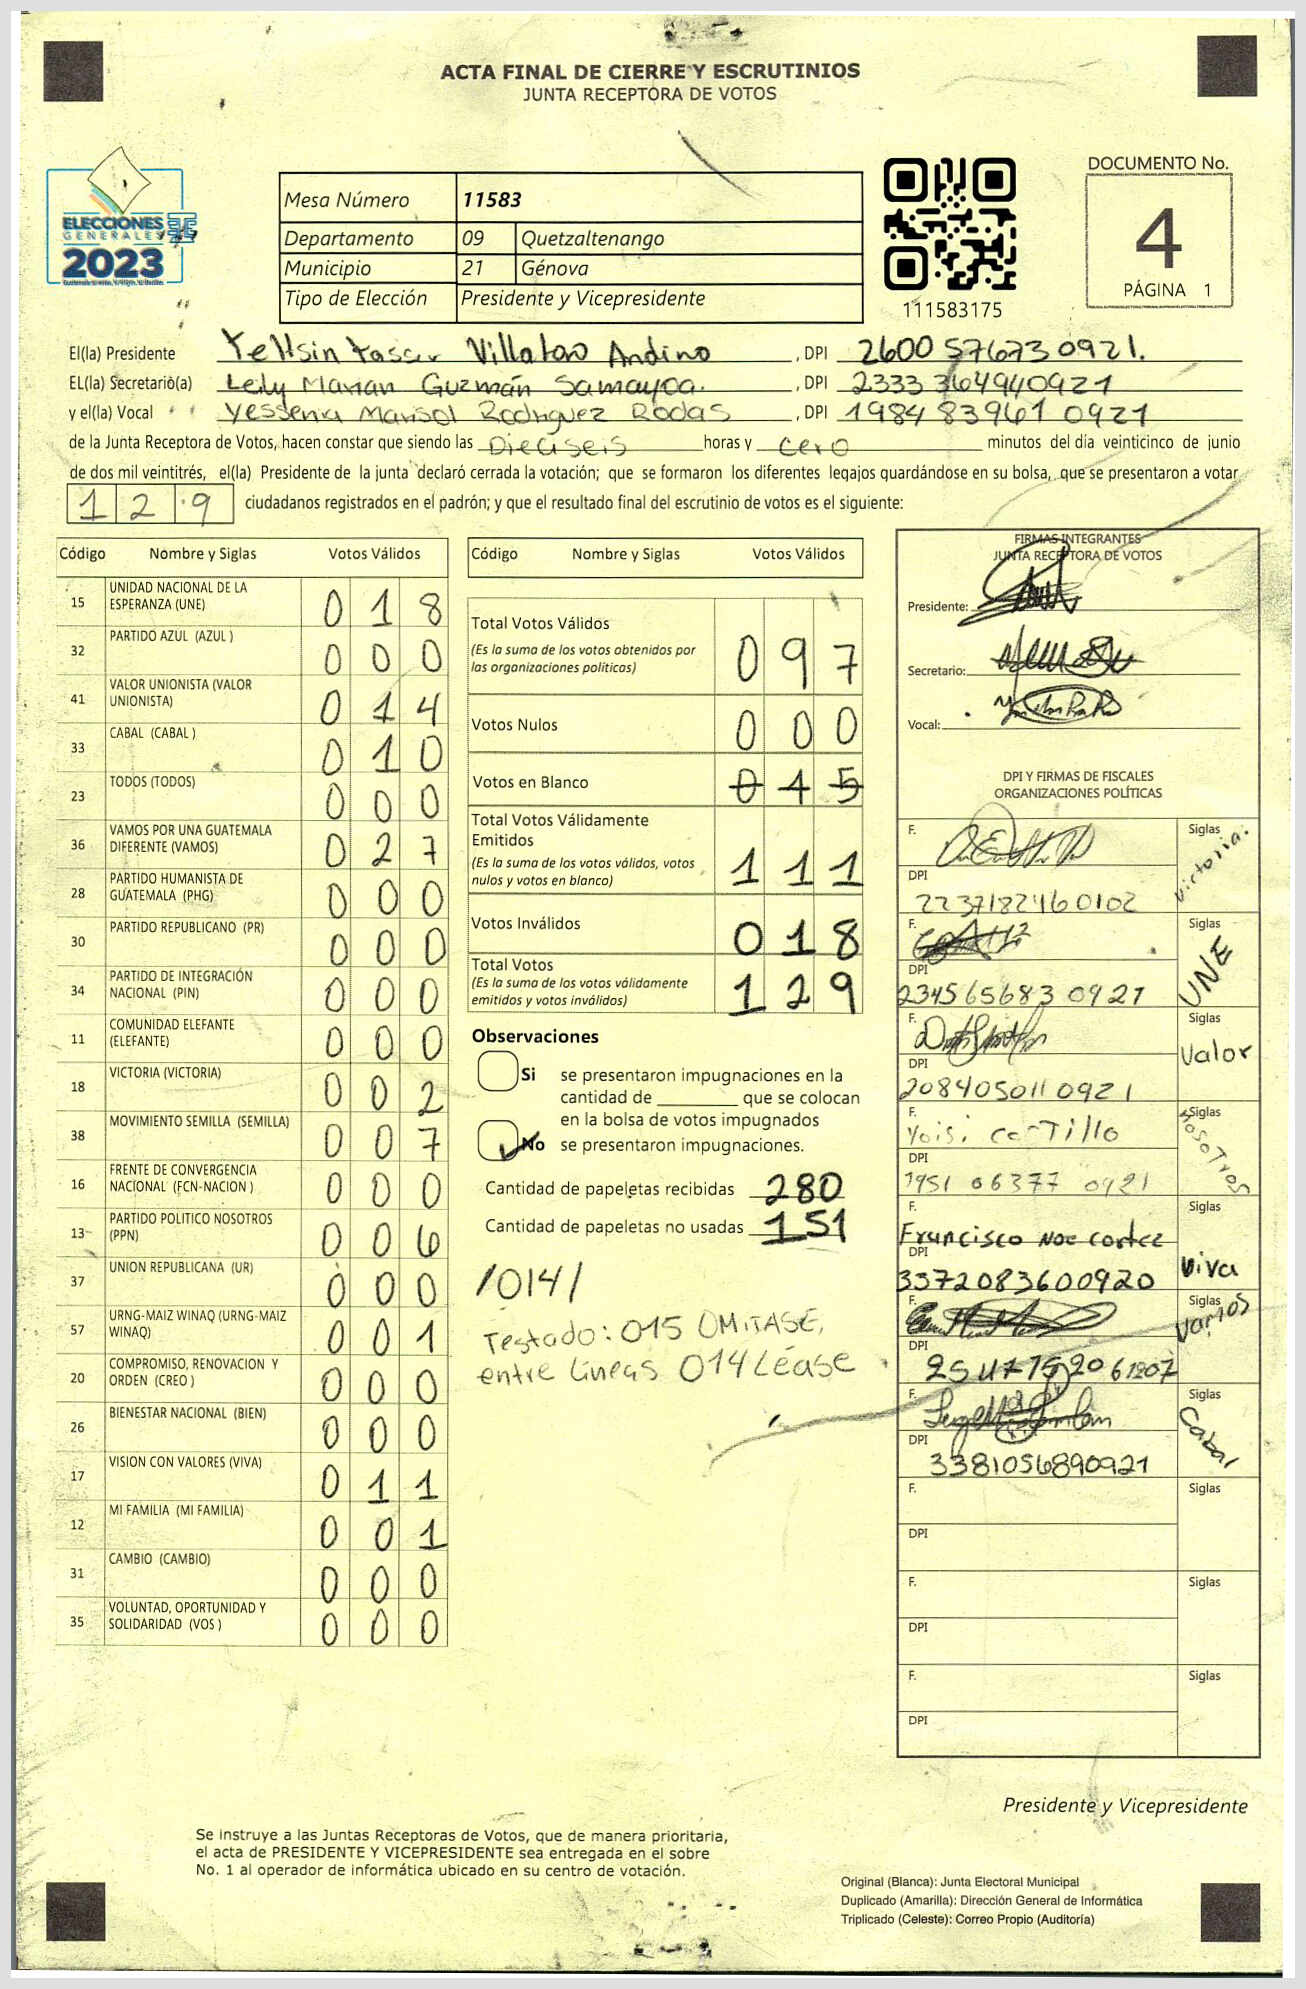 ACTA FINAL DE CIERRE Y ESCRUTINIOS
JUNTA RECEPTORA DE VOTOS
ELECCIONES
GENERALES
2023
Mesa Número 11583
Departamento 09 Quetzaltenango
Municipio 21 Génova
Tipo de Elección Presidente y Vicepresidente
111583175
DOCUMENTO No.
4
PÁGINA 1
El(la) Presidente Yeltsin Yasser Villatoro Andino , DPI 2600 57673 0921.
EL(la) Secretario(a) Leily Marian Guzmán Samayoa. , DPI 2333 36494 0921
y el(la) Vocal Yessenia Marisol Rodriguez Rodas , DPI 1984 83961 0921
de la Junta Receptora de Votos, hacen constar que siendo las Dieciseis horas y cero minutos del día veinticinco de junio
de dos mil veintitrés, el(la) Presidente de la junta declaró cerrada la votación; que se formaron los diferentes legajos quardándose en su bolsa, que se presentaron a votar
129 ciudadanos registrados en el padrón; y que el resultado final del escrutinio de votos es el siguiente:
Código Nombre y Siglas Votos Válidos
15 UNIDAD NACIONAL DE LA ESPERANZA (UNE) 018
32 PARTIDO AZUL (AZUL ) 000
41 VALOR UNIONISTA (VALOR UNIONISTA) 014
33 CABAL (CABAL ) 010
23 TODOS (TODOS) 000
36 VAMOS POR UNA GUATEMALA DIFERENTE (VAMOS) 027
28 PARTIDO HUMANISTA DE GUATEMALA (PHG) 000
30 PARTIDO REPUBLICANO (PR) 000
34 PARTIDO DE INTEGRACIÓN NACIONAL (PIN) 000
11 COMUNIDAD ELEFANTE (ELEFANTE) 000
18 VICTORIA (VICTORIA) 002
38 MOVIMIENTO SEMILLA (SEMILLA) 007
16 FRENTE DE CONVERGENCIA NACIONAL (FCN-NACION ) 000
13 PARTIDO POLITICO NOSOTROS (PPN) 006
37 UNION REPUBLICANA (UR) 000
57 URNG-MAIZ WINAQ (URNG-MAIZ WINAQ) 001
20 COMPROMISO, RENOVACION Y ORDEN (CREO ) 000
26 BIENESTAR NACIONAL (BIEN) 000
17 VISION CON VALORES (VIVA) 011
12 MI FAMILIA (MI FAMILIA) 001
31 CAMBIO (CAMBIO) 000
35 VOLUNTAD, OPORTUNIDAD Y SOLIDARIDAD (VOS ) 000
Código Nombre y Siglas Votos Válidos
Total Votos Válidos 097
(Es la suma de los votos obtenidos por
las organizaciones políticas)
Votos Nulos 000
Votos en Blanco 015
Total Votos Válidamente
Emitidos
(Es la suma de los votos válidos, votos
nulos y votos en blanco) 111
Votos Inválidos 018
Total Votos
(Es la suma de los votos válidamente
emitidos y votos inválidos) 129
Observaciones
Si se presentaron impugnaciones en la
cantidad de ________ que se colocan
en la bolsa de votos impugnados
No se presentaron impugnaciones.
Cantidad de papeletas recibidas 280
Cantidad de papeletas no usadas 151
/014/
Testado: 015 OMITASE,
entre líneas 014 Léase
FIRMAS INTEGRANTES
JUNTA RECEPTORA DE VOTOS
Presidente:
Secretario:
Vocal:
DPI Y FIRMAS DE FISCALES
ORGANIZACIONES POLÍTICAS
F. Siglas Victoria.
DPI 2237182460102
F. Siglas UNE
DPI 234565683 0921
F. Siglas Valor
DPI 2084050110921
F. Yoisi castillo Siglas Nosotros
DPI 1951 06377 0921
F. Francisco Noe cortez Siglas Viva
DPI 3372083600920
F. Siglas Vamos
DPI
F. Siglas Cabal
DPI 3381056890921
F. Siglas
DPI
F. Siglas
DPI
F. Siglas
DPI
Presidente y Vicepresidente
Se instruye a las Juntas Receptoras de Votos, que de manera prioritaria,
el acta de PRESIDENTE Y VICEPRESIDENTE sea entregada en el sobre
No. 1 al operador de informática ubicado en su centro de votación.
Original (Blanca): Junta Electoral Municipal
Duplicado (Amarilla): Dirección General de Informática
Triplicado (Celeste): Correo Propio (Auditoría)